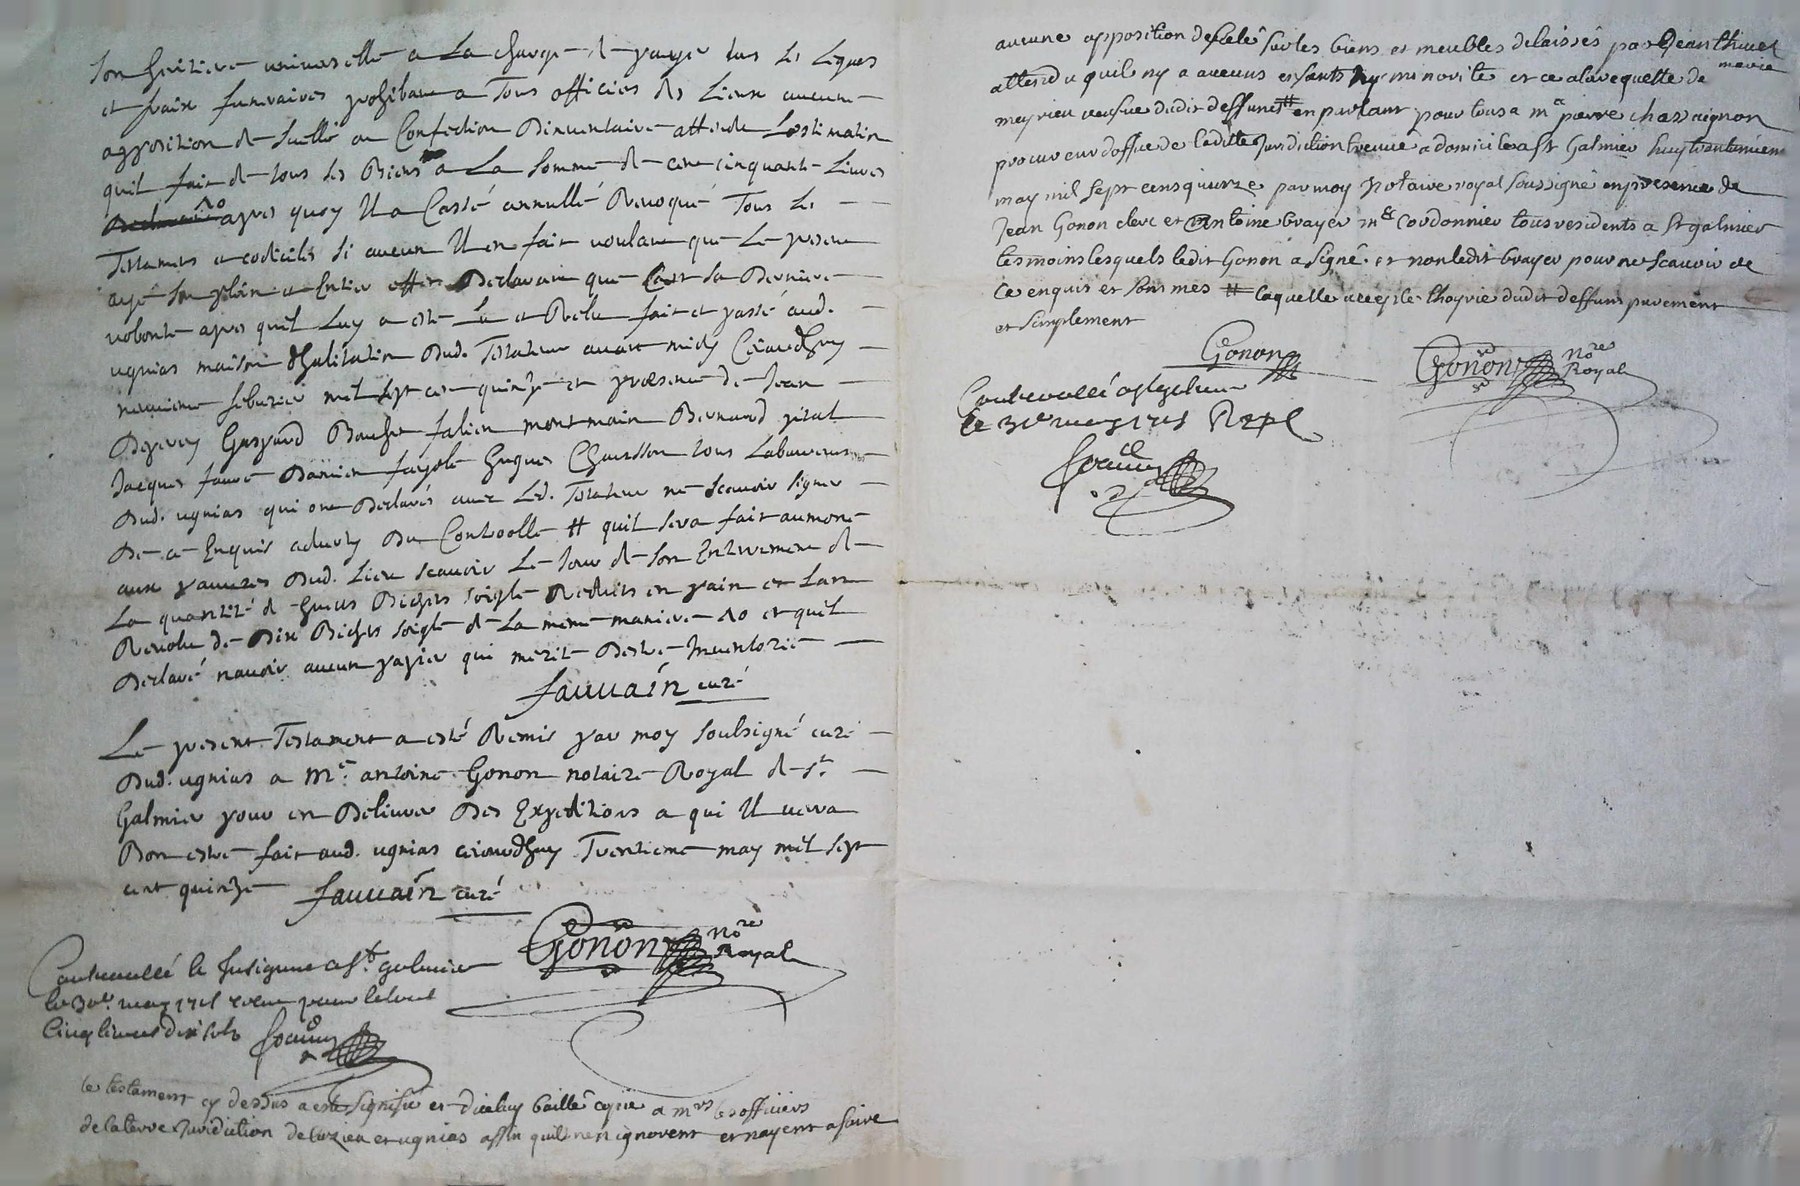 son heritiere universelle a La charge de payer tous les Legues
et fraix funeraires prohibant a Tous officiers des Lieux aucune
apposition de scellé ou Confection Dinventaire attendu Lestimation
quil fait de tous ses Biens a La somme de cent cinquante Livres
apres quoy Il a Cassé annullé Revoqué Tous les
Testaments et codiciles si aucun Il en fait voulant que Le present
aye son plein et Entier effect Declarant que Cest sa Derniere
volonté apres quil Luy a esté Lu et Relu fait et passé aud.
ugnias maison dhabitation Dud. Testateur avant midy Cejourdhuy
neuvieme febvrier mil sept cent quinze en presence de Jean
Gaspard Bouchet falien montmain Bernard pital
Jacques faure Damien fayole hugues Chausson tous Laboureurs
Dud. ugnias qui ont Declarés avec Led. Testateur ne scavoir signer
De ce Enquis adverty Du Controolle # quil sera fait aumone
aux pauvres Dud. Lieu scavoir Le Jour de son Enterrement de
La quantité de huict Bichets soigle Reduits en pain et Lan
Revolu de Dix Bichets soigle de La meme maniere no et quil
Declaré navoir aucun papier qui merite Destre Inventorié
fauvain curé
Le present Testament a esté Remis par moy soubsigné curé
Dud. ugnias a Me. antoine Gonon notaire Royal de st.
Galmier pour en Delivrer Des Expeditions a qui Il verra
Bon estre fait aud. ugnias cejourdhuy Trentieme may mil sept
cent quinze fauvain curé
Gonon Nore Royal
Controollé le Insigune a st. galmier
le 30e. may 1715 receu pour le tout
Cinq livres dix sols
le testament cy dessus a esté signifié et dicelluy baillé copie a mrs les officiers
de la terre Juridiction de Cuzieu et ugnias affin quils nen ignorent et nayent a faire
aucune apposition de scelé sur les biens et meubles delaissés par Jean thivel
attendu quil ny a aucuns enfants ny minorité et ce a la requette de marie
meyrieu veufve dudit deffunct # en parlant pour tous a me pierre chassaignon
procureur doffice de ladite Juridiction treuvé a domicile a st Galmier huy trantunieme
may mil sept cens quinze par moy Notaire royal soussigné en presence de
Jean Gonon clerc et Antoine brayer me Cordonnier tous residents a st galmier
tesmoins lesquels ledit Gonon a signé et non ledit brayer pour ne scavoir de
ce enquis et sommés # laquelle accepte lhoyrie dudit deffunt purement
et simplement
Gonon
Gonon Nores Royal
Controollé a st galmier
le 31e may 1715